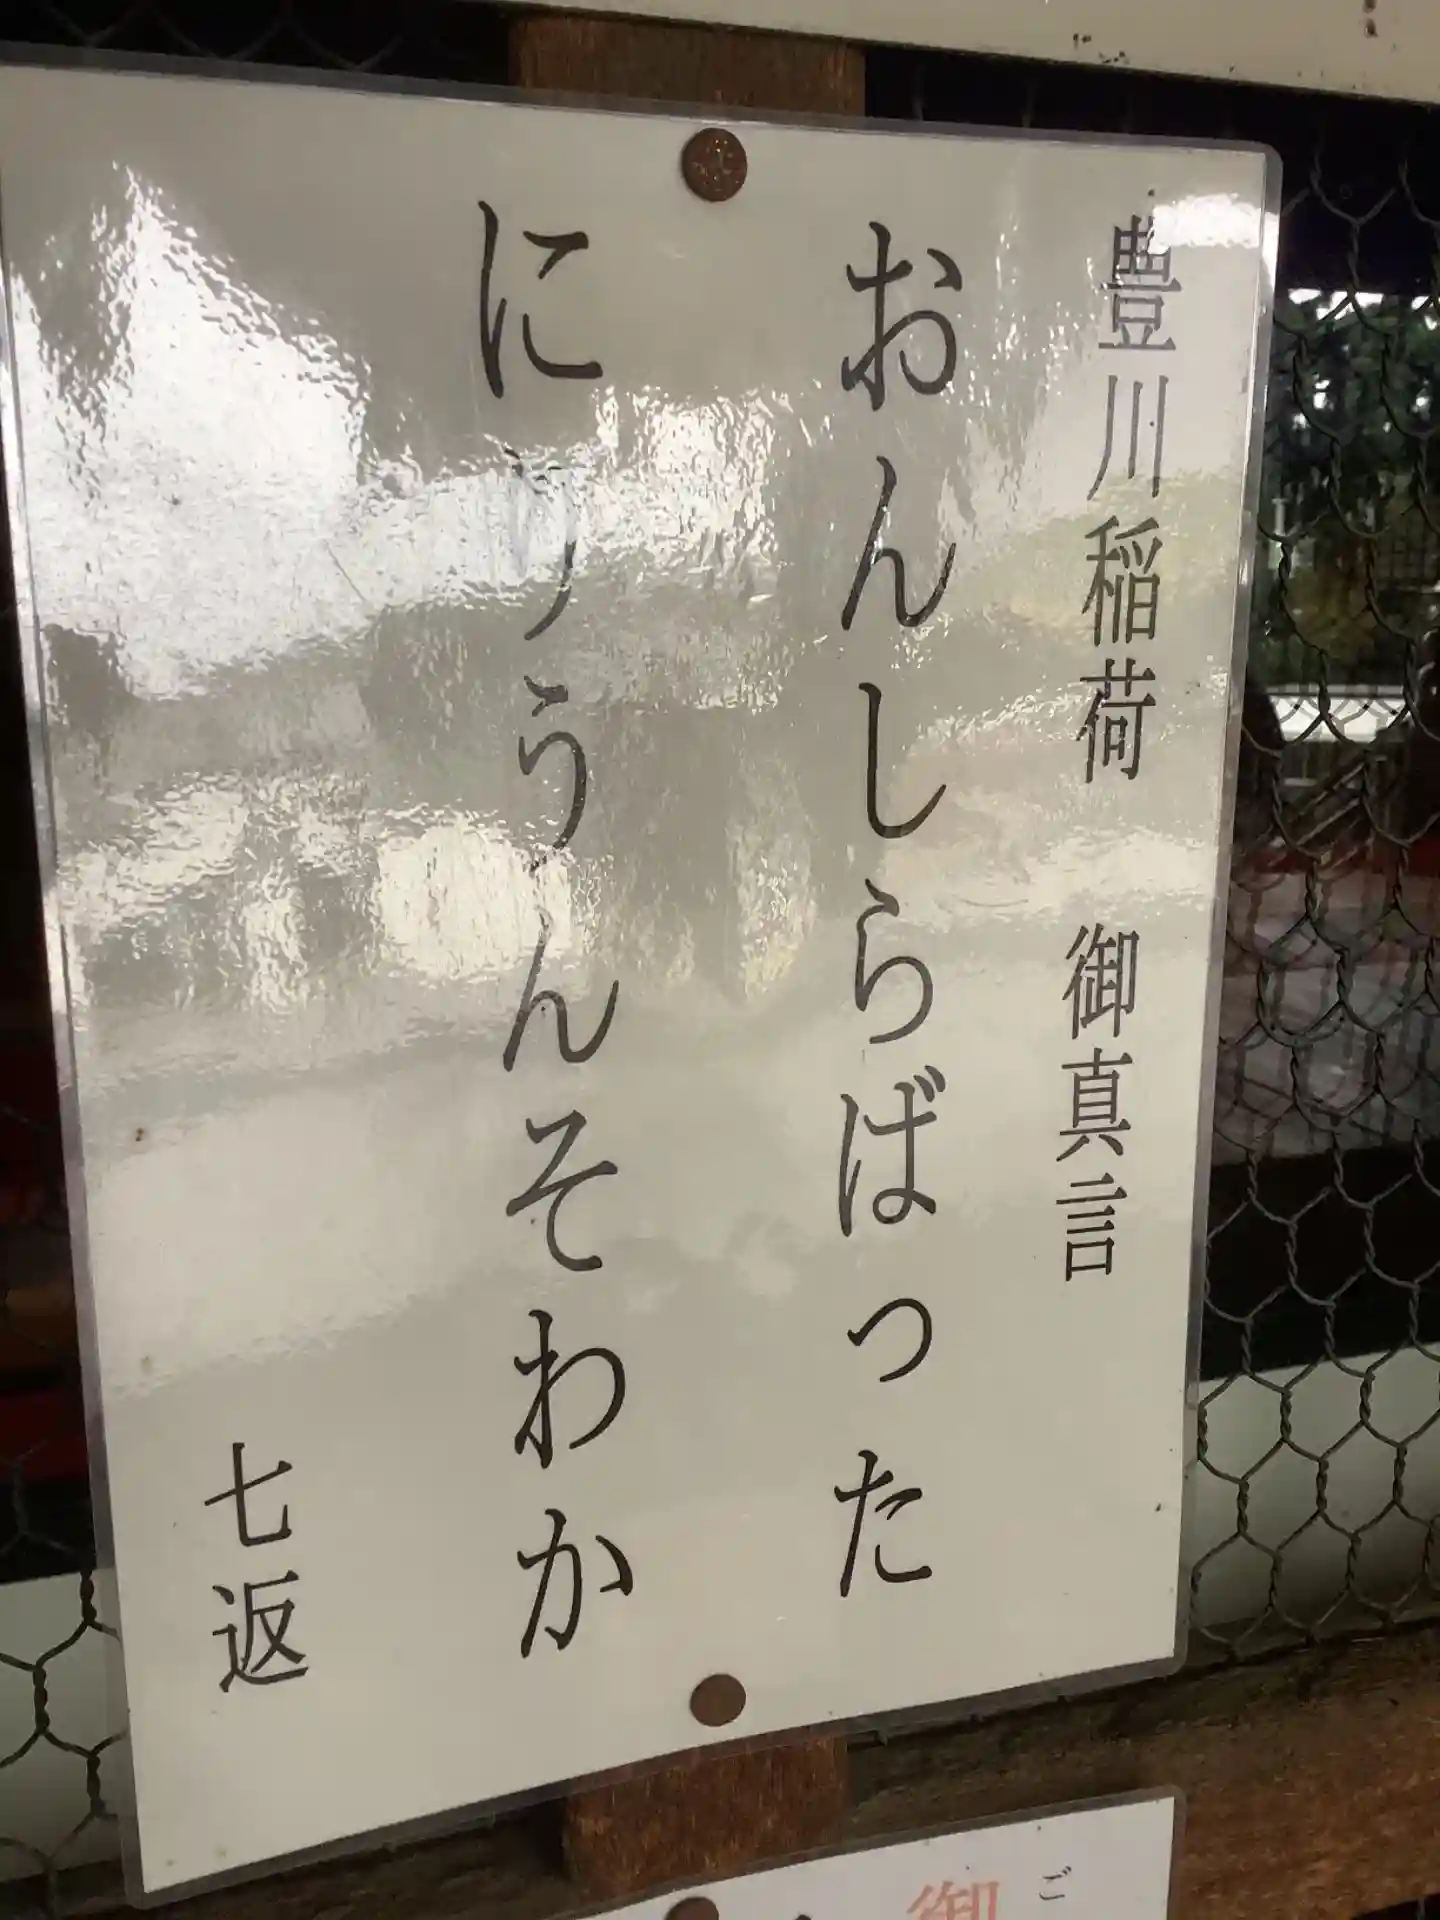 豊川稲荷　御真言
おんしらばった
にりうんそわか
七返
ご
御